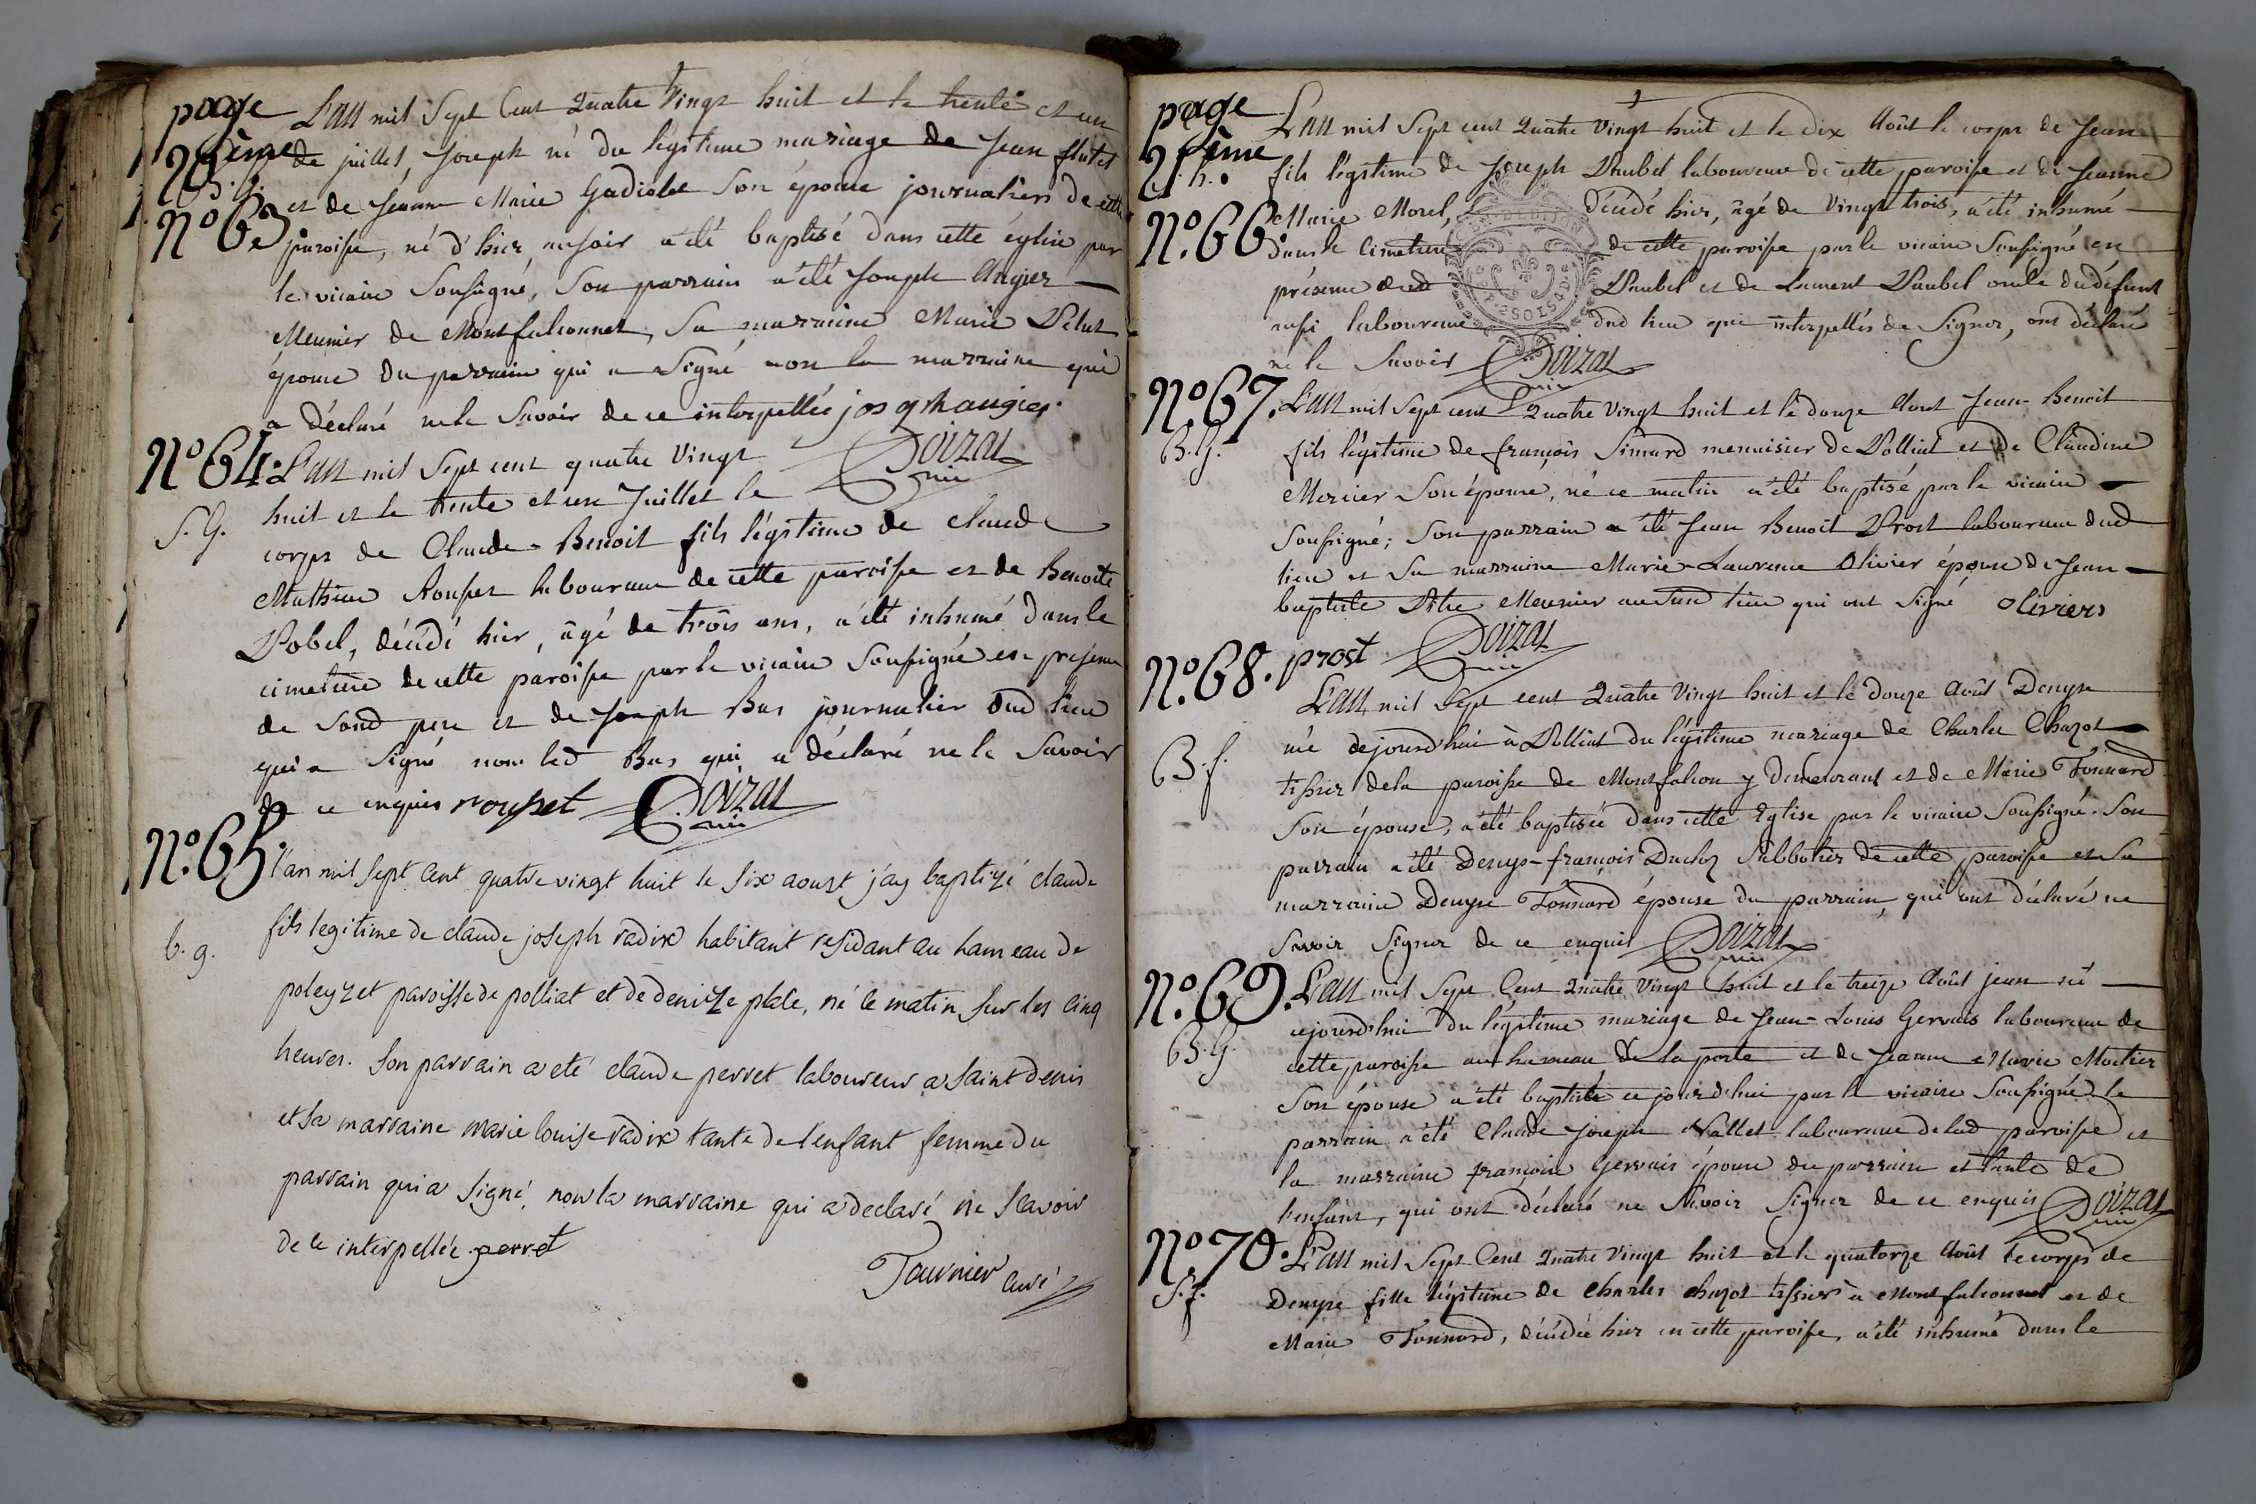 page
20ème
L'an mil Sept Cent Quatre Vingt huit et le trente et un
de juillet, Joseph né du légitime mariage de Jean flutet
B. g.
et de Jeanne Marie Gadiolet Son épouse journaliers de cette
N° 63
paroisse, né d'hier au soir a été baptisé dans cette église par
le vicaire Soussigné, Son parrain a été Joseph Augier
Meunier de Montfalconnet, Sa marraine Marie Velut
épouse du parrain qui a Signé non la marraine qui
a déclaré ne le Savoir de ce interpellée joseph augier
Doizat
vic
N° 64.
L'an mil Sept cent quatre Vingt
huit et le trente et un Juillet le
S. G.
corps de Claude-Benoit fils légitime de Claude
Mathieu Rousset laboureur de cette paroisse et de Benoite
Pobel, décédé hier, âgé de trois ans, a été inhumé dans le
cimetière de cette paroisse par le vicaire Soussigné en présence
de Sond père et de Joseph Bas journalier dud lieu
qui a Signé non led Bas qui a déclaré ne le Savoir
de ce enquis rousset Doizat
vic
N° 65.
l'an mil Sept Cent quatre vingt huit le Six aoust j'ay baptizé claude
b. g.
fils legitime de claude joseph radix habitant residant au hameau de
poleyzet paroisse de polliat et de denize place, né le matin Sur les cinq
heures. Son parrain a eté claude perret laboureur a Saint denis
et sa marraine marie louise radix tante de l'enfant femme du
parrain qui a Signé, non la marraine qui a declaré ne Scavoir
de ce interpellée. perret
Tavernier Curé
page
21ème
L'an mil Sept cent Quatre Vingt huit et le dix Août le corps de Jean
S. h.
fils légitime de Joseph Paubel laboureur de cette paroisse et de Jeanne
N° 66.
Marie Morel, décédé hier, âgé de Vingt trois, a été inhumé
dans le Cimetière de cette paroisse par le vicaire Soussigné en
présence dud Paubel et de Laurent Paubel oncle du défunt
aussi laboureur dud lieu qui interpellés de Signer, ont déclaré
ne le Savoir Doizat
vic
N° 67.
L'an mil Sept cent Quatre Vingt huit et le douze Aout Jean-Benoit
B. G.
fils légitime de françois Simard menuisier de Polliat et de Claudine
Mercier Son épouse, né ce matin a été baptisé par le vicaire
Soussigné; Son parrain a été Jean Benoit Prost laboureur dud
lieu et Sa marraine Marie-Laurence Olivier épouse de Jean
baptiste Pitre Meunier au Susd lieu qui ont Signé Oliviers
prost Doizat
vic
N° 68.
L'an mil Sept cent Quatre Vingt huit et le douze Août Denyse
B. f.
née cejourd'hui à Polliat du légitime mariage de Charles Chazot
tissier de la paroisse de Montfalcon y demeurant et de Marie Tonnard
Son épouse, a été baptisée dans cette Eglise par le vicaire Soussigné. Son
parrain a été Denys-françois Duclos Sabbotier de cette paroisse et Sa
marraine Denyse Tonnard épouse du parrain, qui ont déclaré ne
Savoir Signer de ce enquis Doizat
vic
N° 69.
L'an mil Sept Cent Quatre Vingt huit et le treize Août jean né
B. G.
cejourd'hui du légitime mariage de Jean-Louis Gervais laboureur de
cette paroisse au hameau de la poste et de Jeanne Marie Mortier
Son épouse a été baptisé ce jourd'hui par le vicaire Soussigné le
parrain a été Claude Joseph Vallet laboureur de lad paroisse et
la marraine françoise Gervais épouse du parrain et tante de
l'enfant, qui ont déclaré ne Savoir Signer de ce enquis Doizat
vic
N° 70.
L'an mil Sept Cent Quatre Vingt huit et le quatorze Août le corps de
S. f.
Denyse fille légitime de Charles Chazot tissier à Montfalconnet et de
Marie Tonnard, décédée hier en cette paroisse, a été inhumé dans le